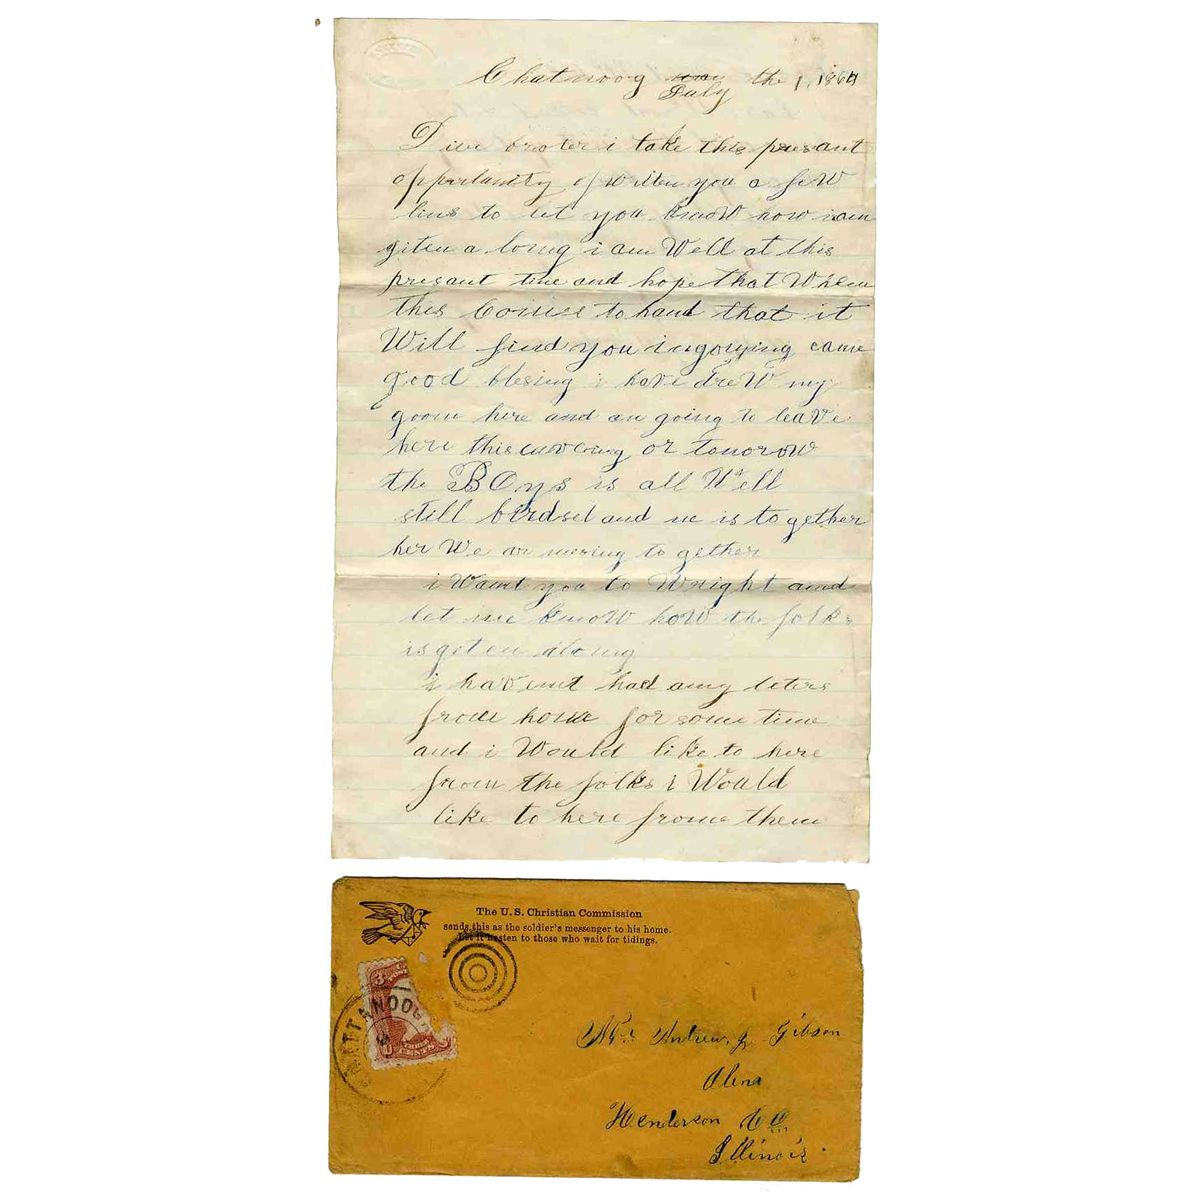 Chatnoog July the 1, 1864
Dive broter i take this presant
oppertunity of writen you a few
lins to let you know how i am
giten a long i am Well at this
presant time and hope that When
this Comes to hand that it
Will find you ingoying came
good blesing i have dreW my
goom here and am going to leave
here this eavening or tomorow
the BOys is all Well
still birdsel and me is to gether
her We ar mesing to gether
i Want you to Wright and
let me knoW hoW the folks
is geten along
i havent had any leters
from home for some time
and i Would like to here
from the folks i Would
like to here frome them
The U.S. Christian Commission
sends this as the soldier's messenger to his home.
Let it hasten to those who wait for tidings.
CHATTANOOGA
3
THREE
CENTS
Mr Andrew J. Gibson
Olena
Henderson CO
Illinois